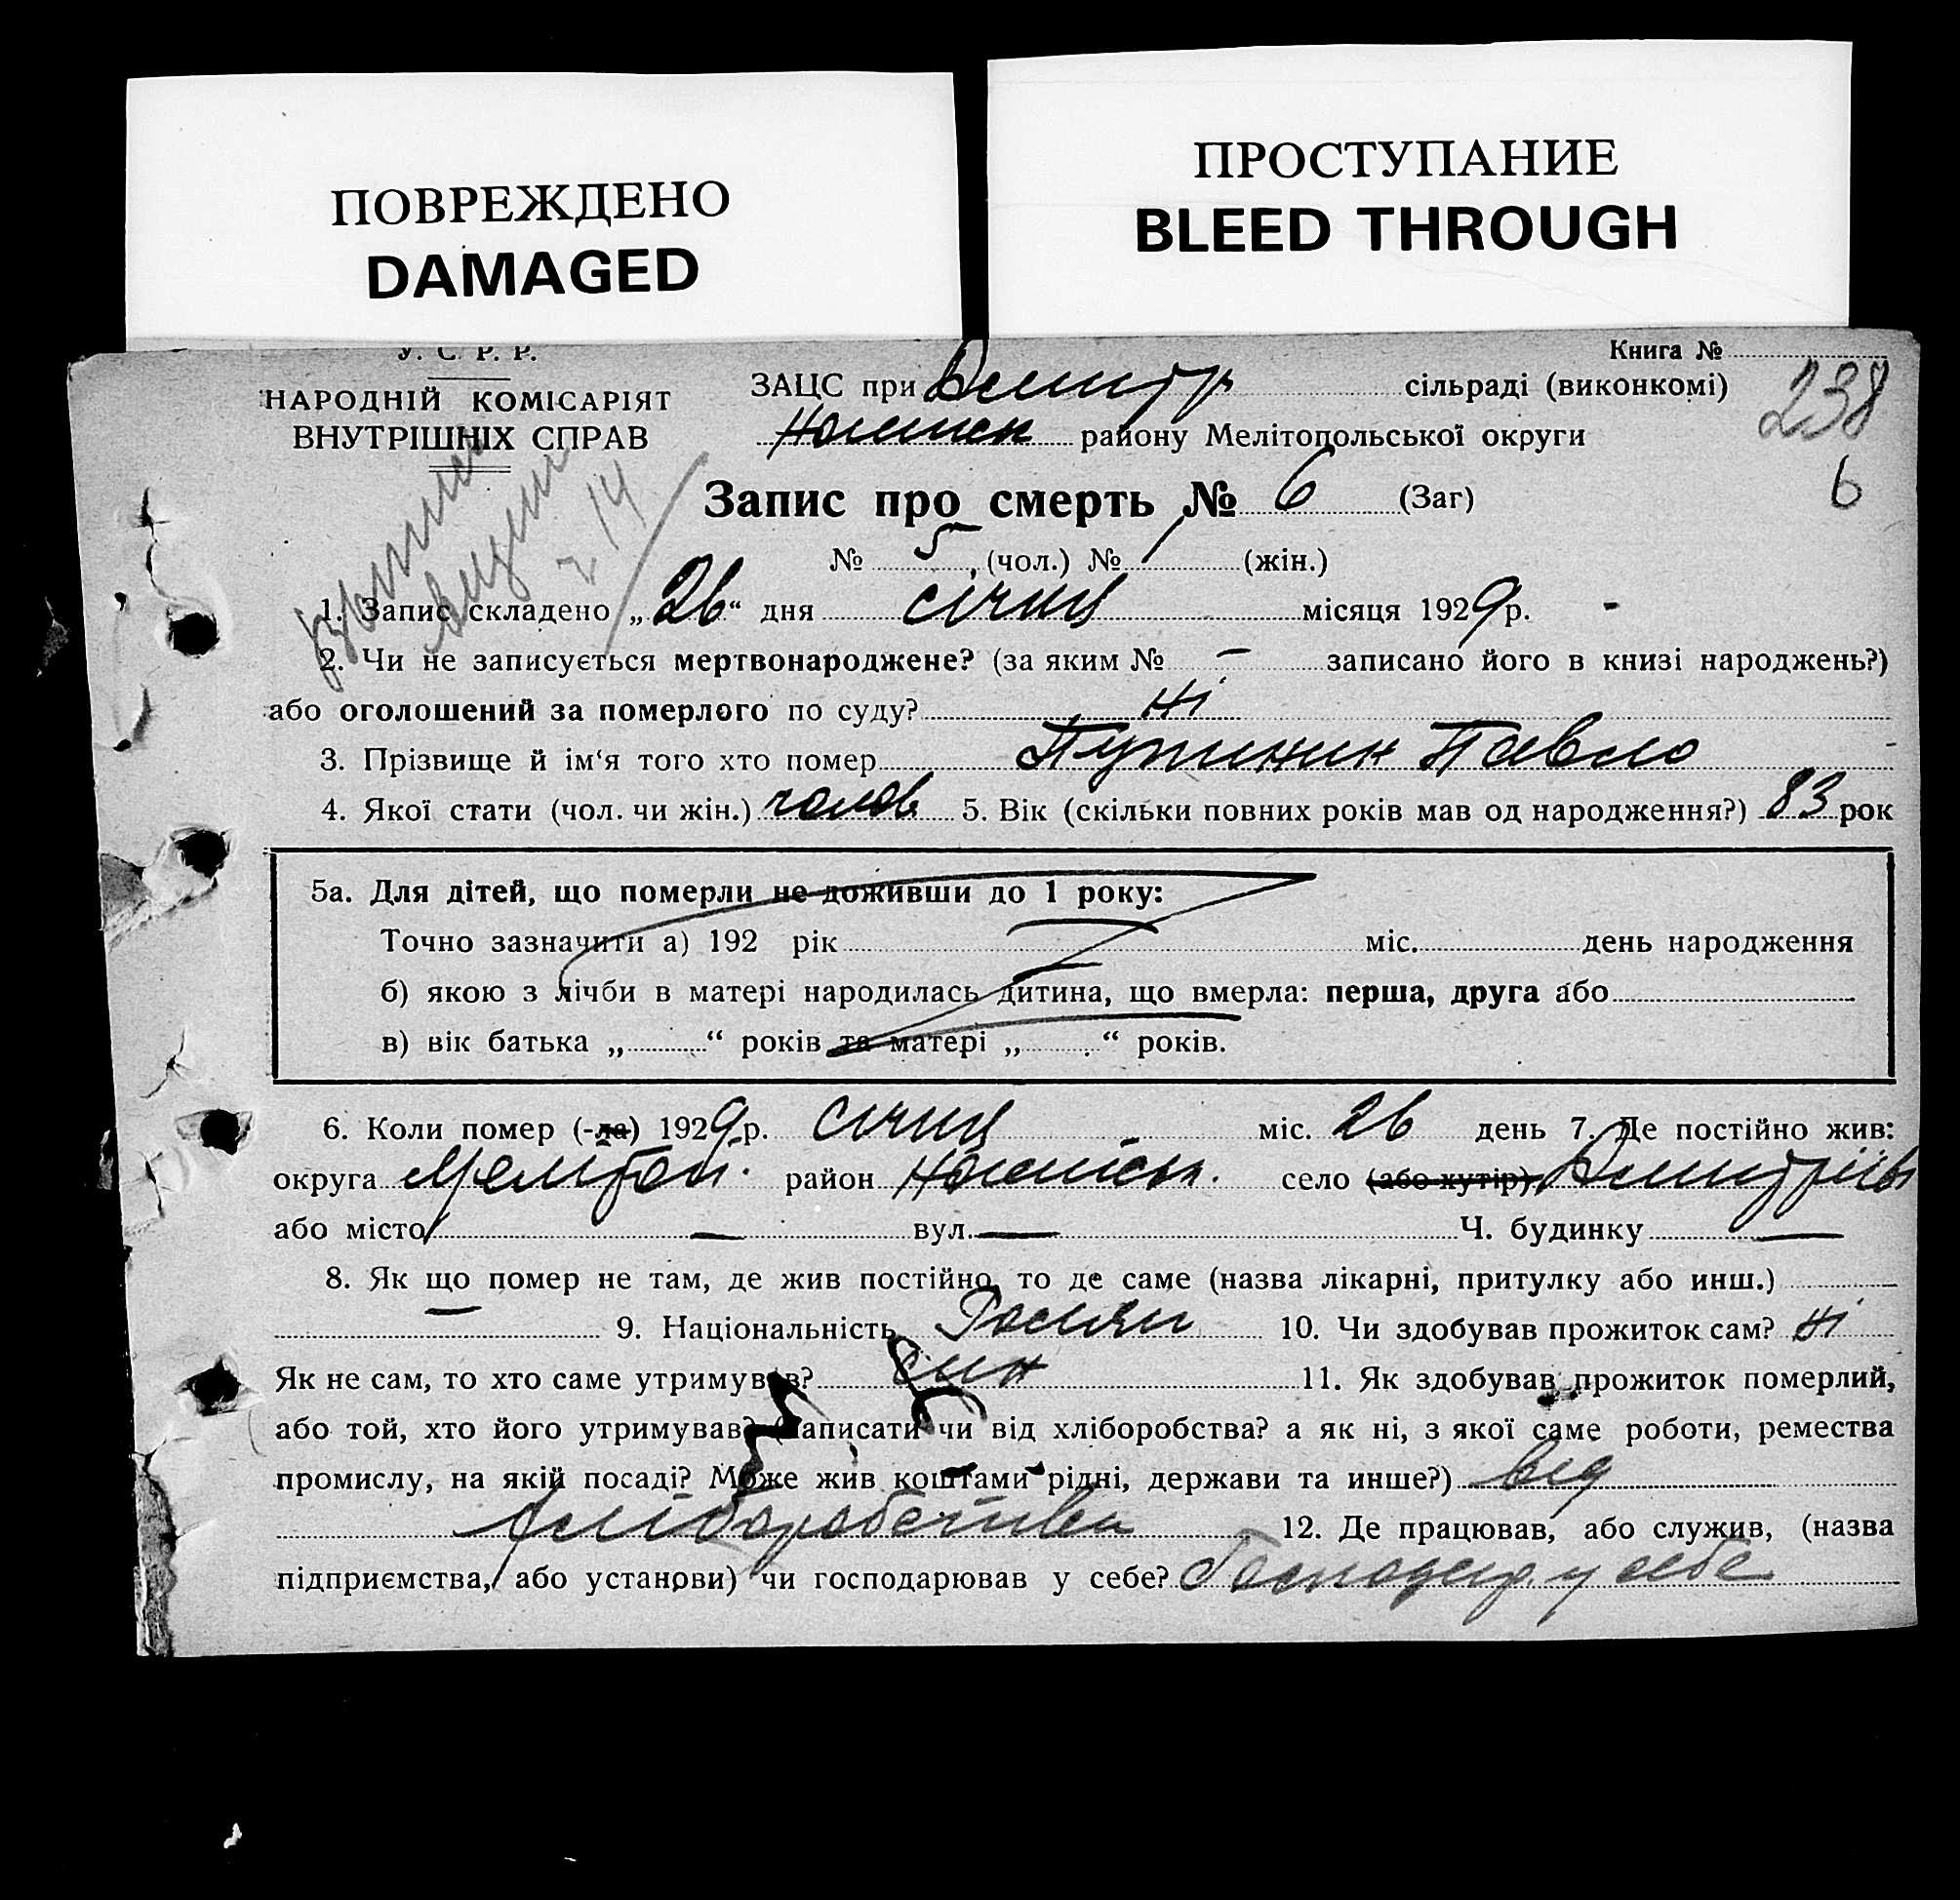 ПОВРЕЖДЕНО
DAMAGED
ПРОСТУПАНИЕ
BLEED THROUGH
У. С. Р. Р.
НАРОДНІЙ КОМІСАРІЯТ
ВНУТРІШНІХ СПРАВ
Книга №
238
6
ЗАЦС при Дмитр сільраді (виконкомі)
району Мелітопольської округи
Запис про смерть № 6 (Заг)
№ 5, (чол.) № 1 (жін.)
1. Запис складено „26“ дня січня місяця 1929р.
2. Чи не записується мертвонароджене? (за яким № – записано його в книзі народжень?)
або оголошений за померлого по суду? Ні
3. Прізвище й ім‘я того хто помер Павло
4. Якої стати (чол. чи жін.) чолов 5. Вік (скільки повних років мав од народження?) 83 рок
5а. Для дітей, що померли не доживши до 1 року:
Точно зазначити а) 192 рік міс. день народження
б) якою з лічби в матері народилась дитина, що вмерла: перша, друга або
в) вік батька „ “ років та матері „ “ років.
6. Коли помер (-ла) 1929р. січня міс. 26 день 7. Де постійно жив:
округа Мелітоп. район село (або хутір) Дмитрів
або місто — вул. — Ч. будинку —
8. Як що помер не там, де жив постійно, то де саме (назва лікарні, притулку або инш.)
— 9. Національність Росіян 10. Чи здобував прожиток сам? Ні
Як не сам, то хто саме утримував? син 11. Як здобував прожиток померлий,
або той, хто його утримував? (Написати чи від хліборобства? а як ні, з якої саме роботи, ремества
промислу, на якій посаді? Може жив коштами рідні, держави та инше?) від
хліборобства 12. Де працював, або служив, (назва
підприємства, або установи) чи господарював у себе? Господар. у себе